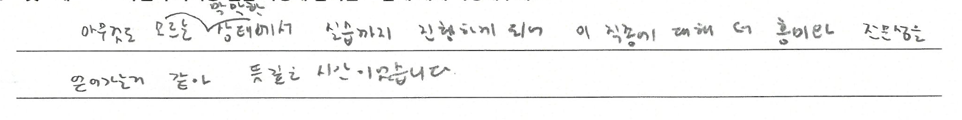 아무것도 모르는 막막한 상태에서 실습까지 진행하게 되니 이 직종에 대해 더 흥미와 전문성을
얻어가는거 같아 뜻깊은 시간이었습니다.